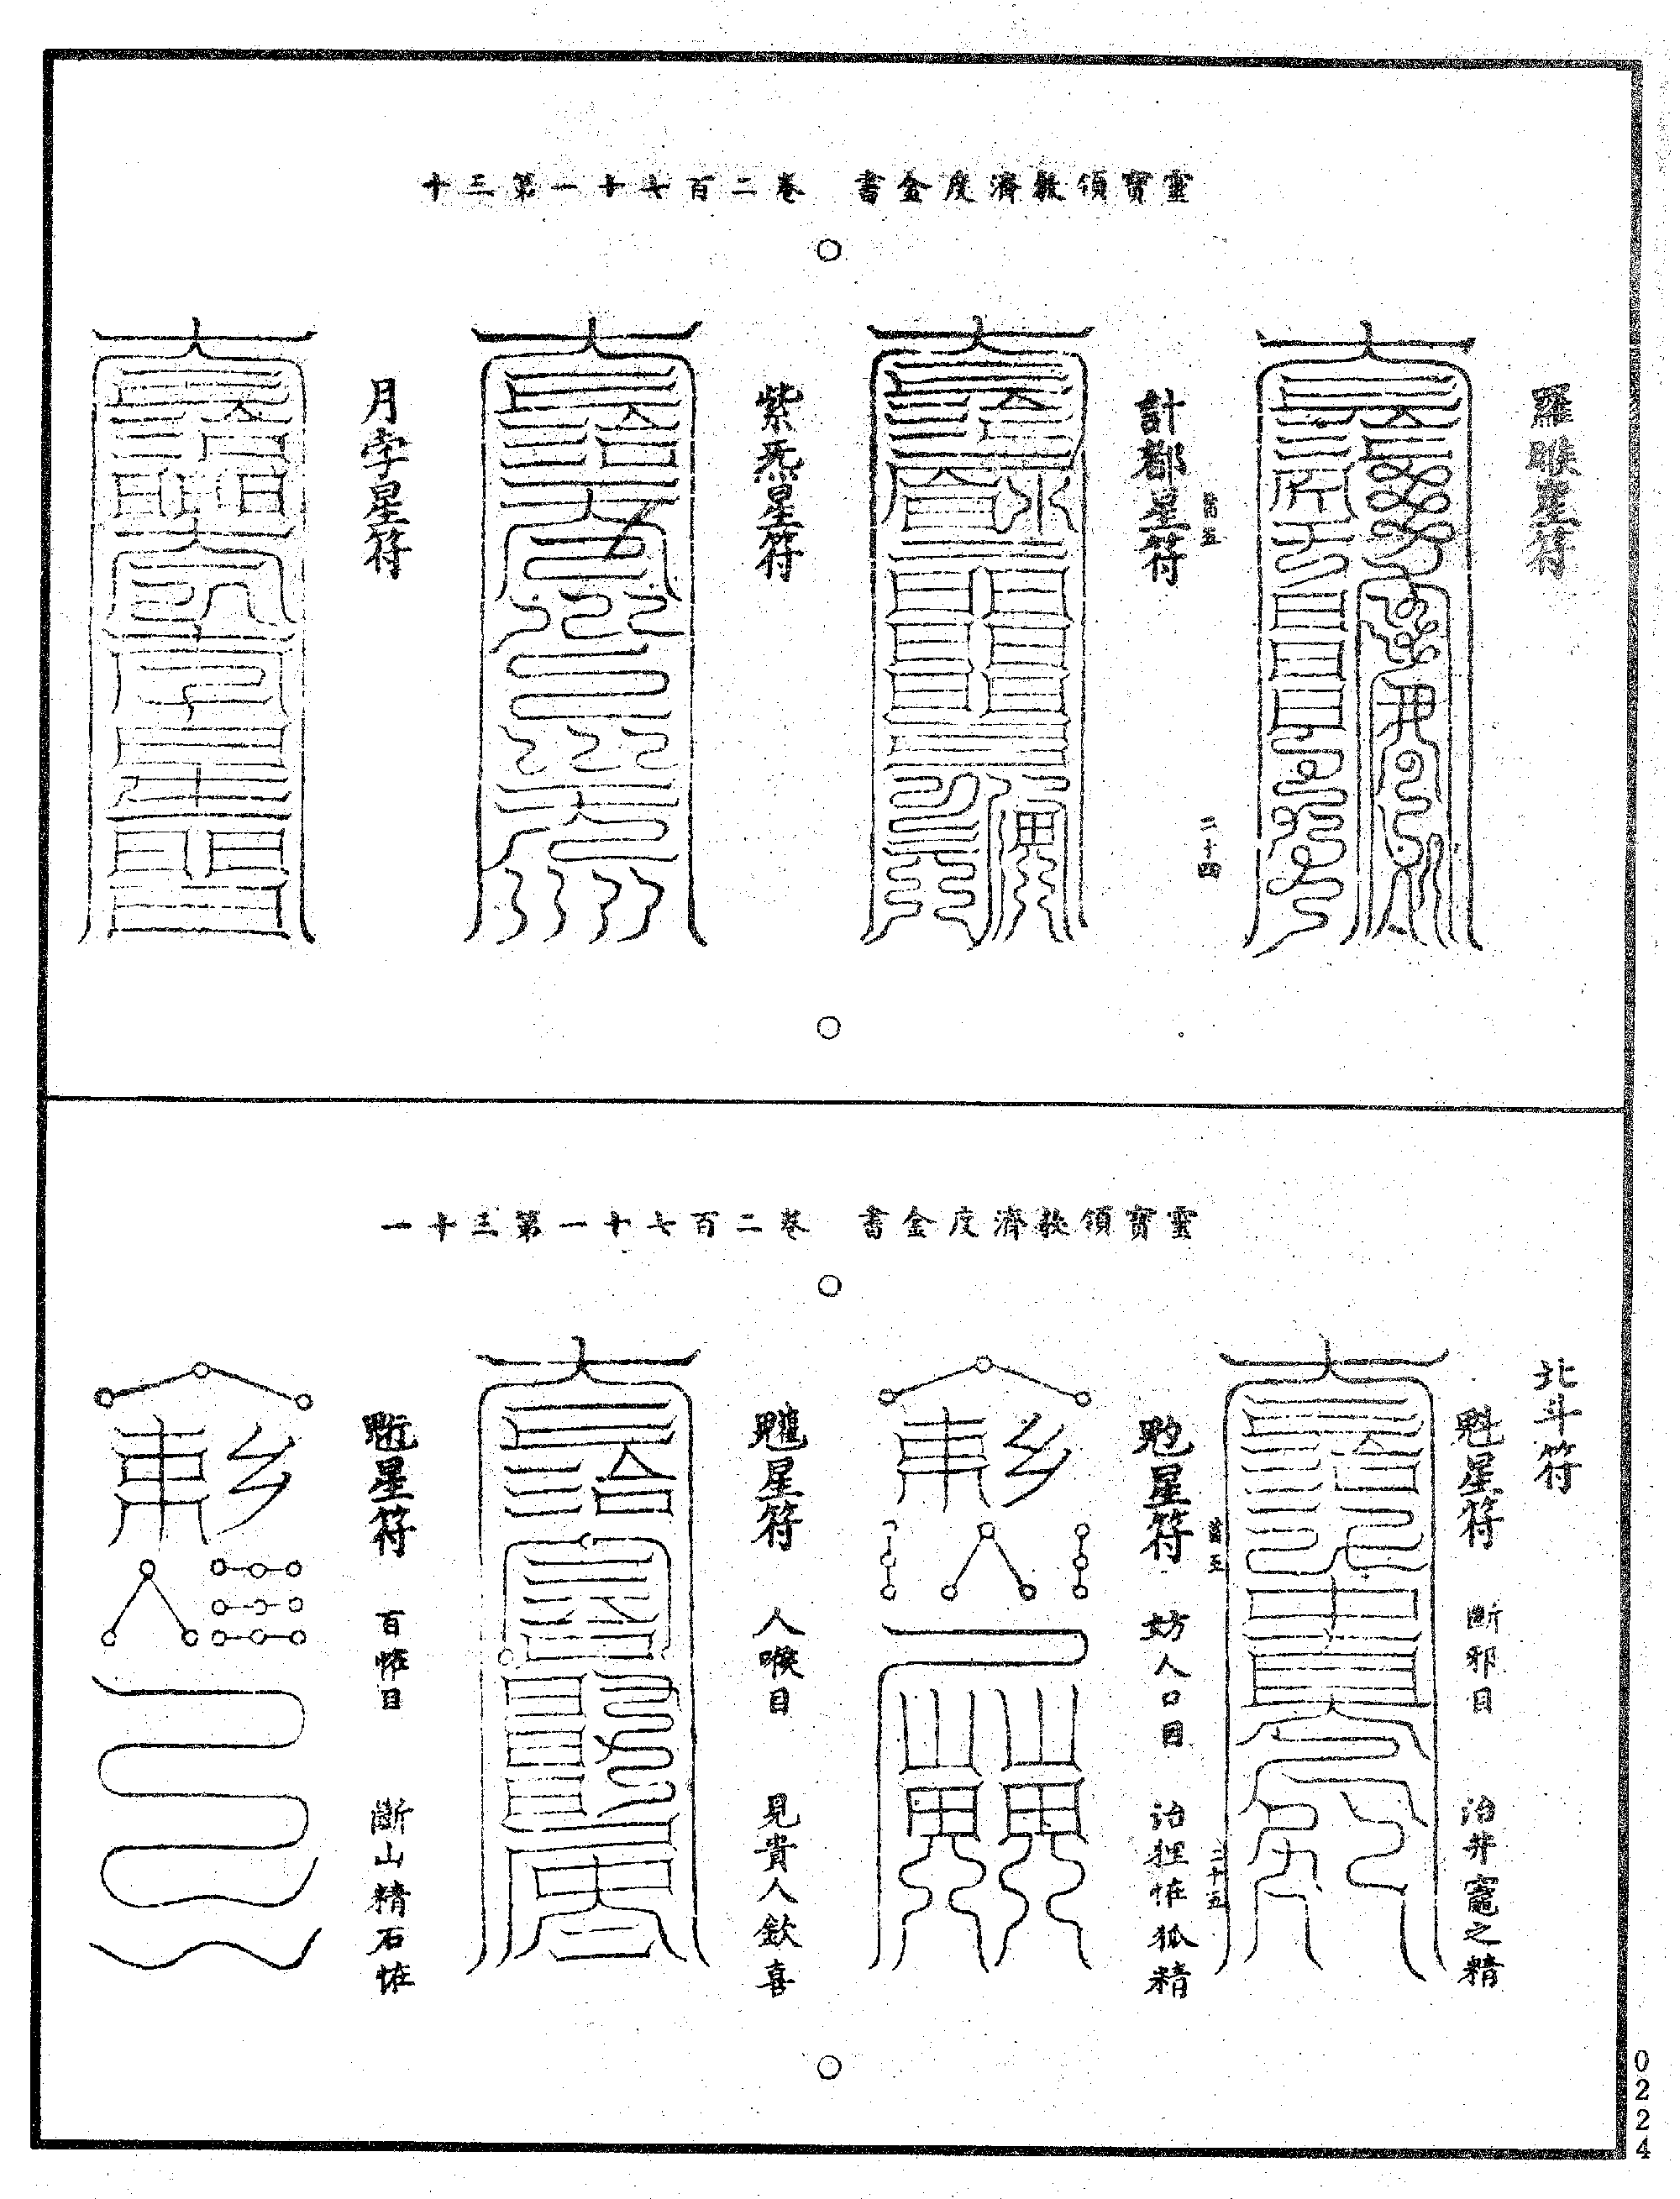 靈寶領教濟度金書 卷二百七十一第三十
羅睺星符
計都星符
二十四
紫炁星符
月孛星符
靈寶領教濟度金書 卷二百七十一第三十一
北斗符
魁星符 斷邪目 治井竈之精
星符 妨人口目 治狸恠狐精
二十五
星符 人喉目 見貴人欽喜
星符 百恠目 斷山精石恠
0224